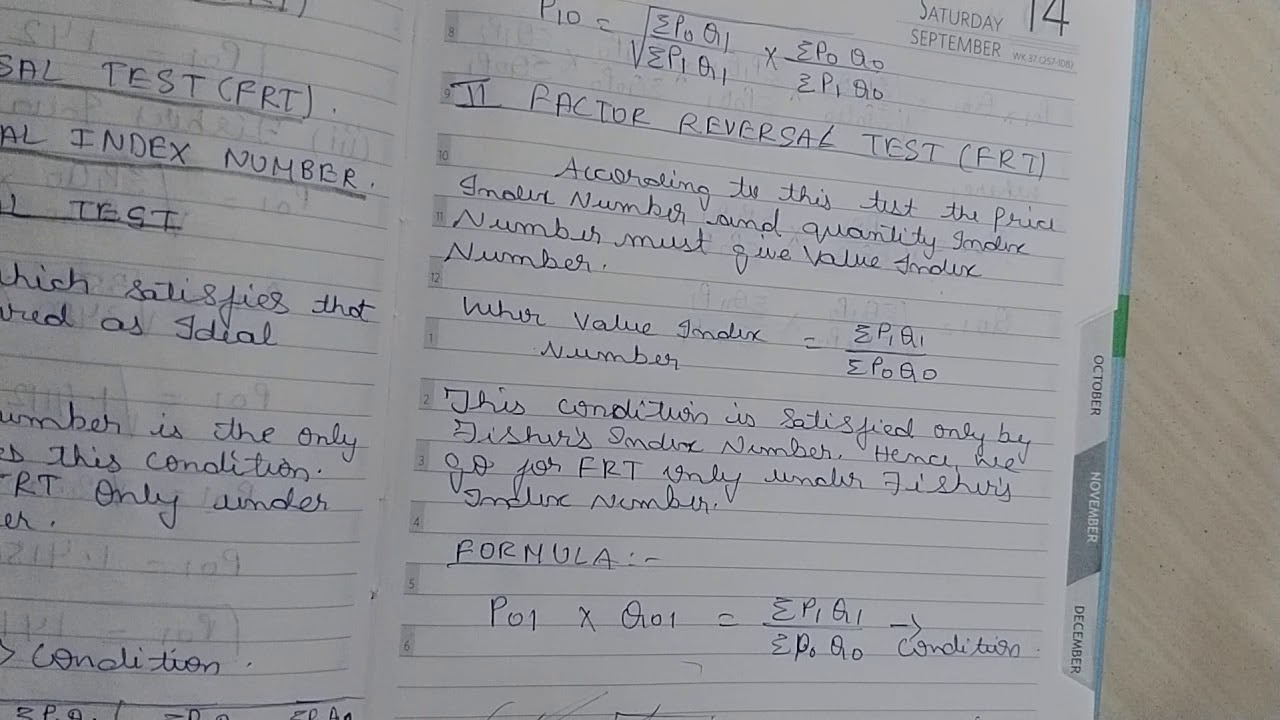 SAL TEST (FRT).
AL INDEX NUMBER.
L TEST
which satisfies that
as Ideal
umber is the only
this condition.
FRT Only under
er.
Condition.
SATURDAY 14
SEPTEMBER WK 37 (257-108)
8
P10 = √ΣP0 Q1 / ΣP1 Q1 × ΣP0 Q0 / ΣP1 Q0
9 II FACTOR REVERSAL TEST (FRT)
10 According to this test the Price
Index Number and quantity Index
11 Number must give Value Index
Number.
12
Wher Value Index Number = ΣP1Q1 / ΣP0Q0
1
2 This condition is satisfied only by
Fisher's Index Number. Hence we
3 go for FRT only under Fisher's
Index Number.
4
FORMULA :-
5
P01 × Q01 = ΣP1 Q1 / ΣP0 Q0 → Condition.
6
OCTOBER
NOVEMBER
DECEMBER